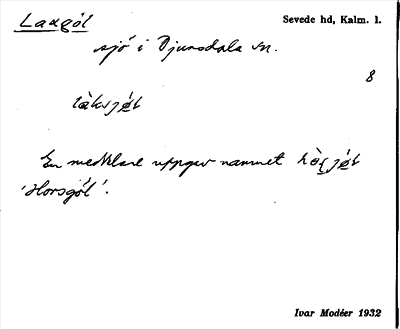 Laxgöl
Sevede hd, Kalm. l.
sjö i Djursdala sn.
8
En meddelare uppgev namnet
'Horsgöl'.
Ivar Modéer 1932